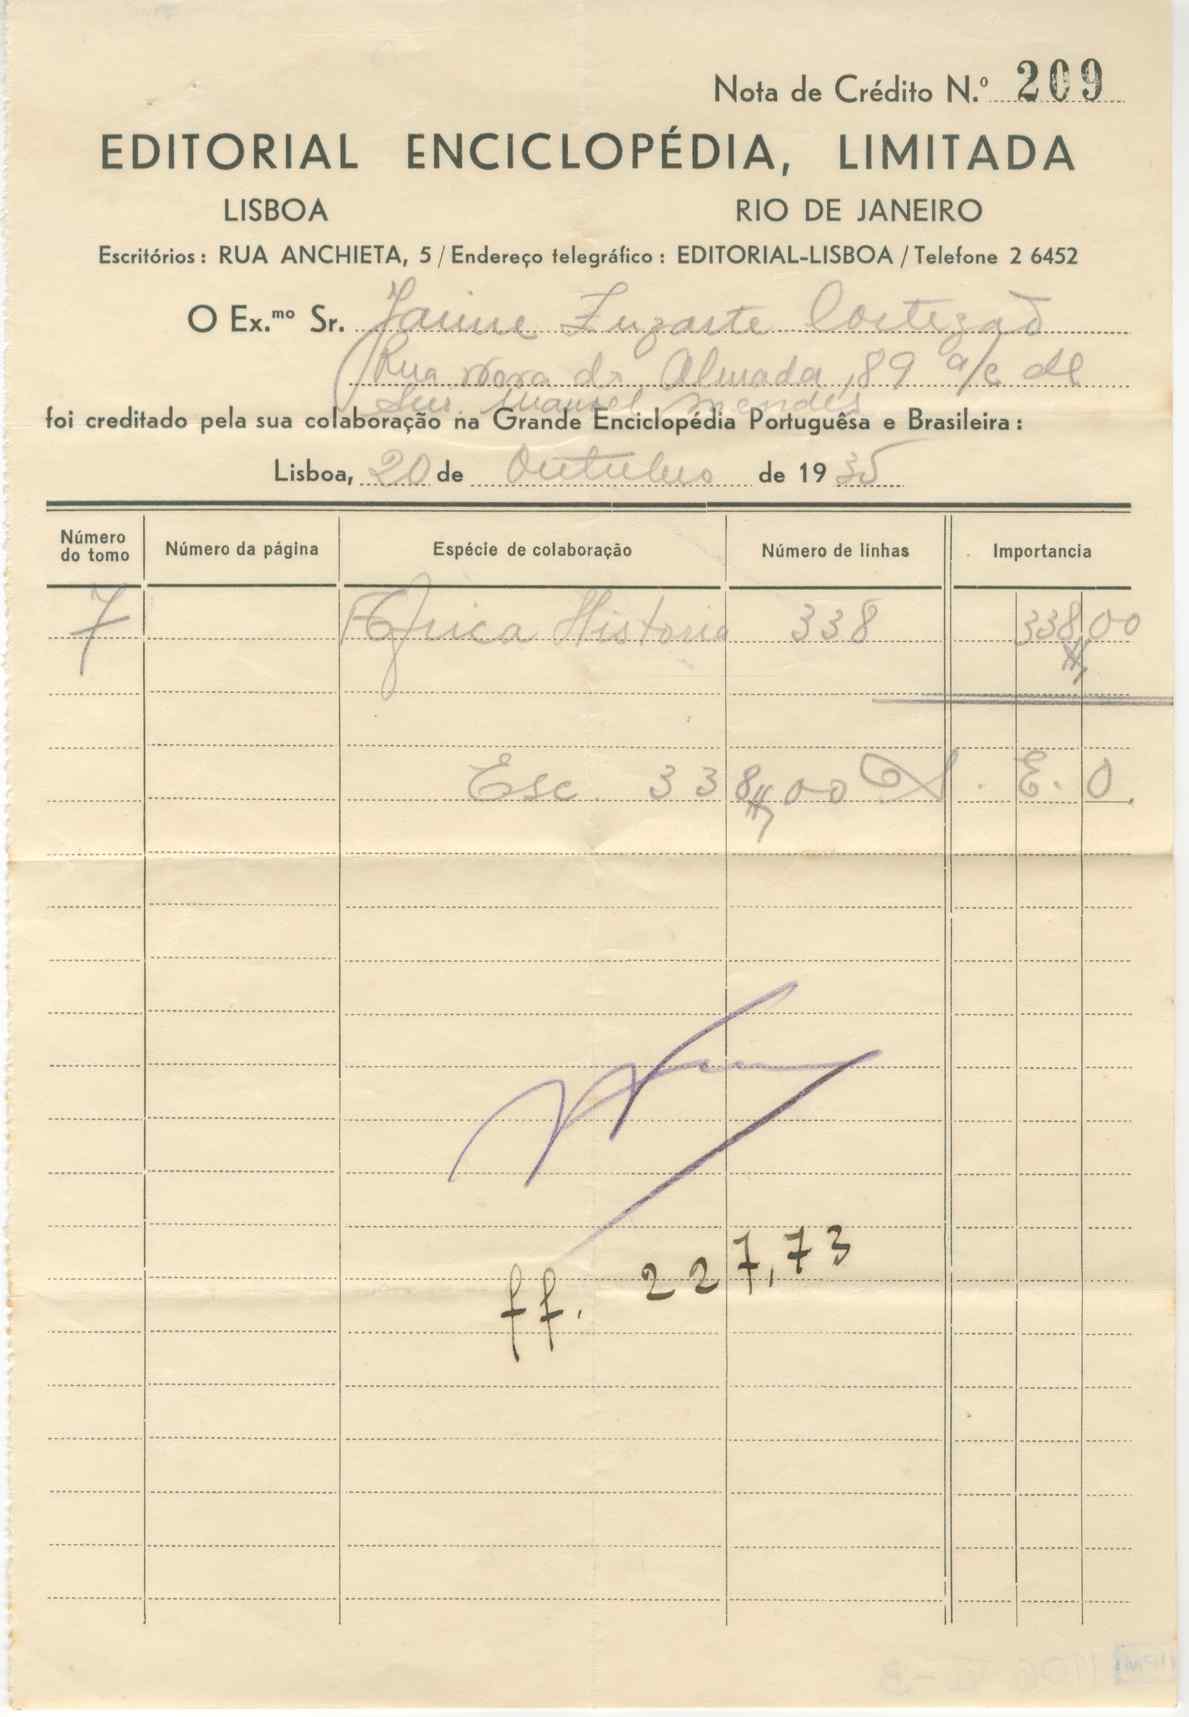 Nota de Crédito N.º 209
EDITORIAL ENCICLOPÉDIA, LIMITADA
LISBOA RIO DE JANEIRO
Escritórios : RUA ANCHIETA, 5 / Endereço telegráfico : EDITORIAL-LISBOA / Telefone 2 6452
O Ex.mo Sr. Jaime Zuzarte Cortezão
Rua Nova do Almada, 89 a/c de
Snr. Manuel Mendes
foi creditado pela sua colaboração na Grande Enciclopédia Portuguêsa e Brasileira :
Lisboa, 20 de Outubro de 1935
Número do tomo Número da página Espécie de colaboração Número de linhas Importancia
7 Africa Historia 338 338,00
Esc. 338,00 S. E. O.
ff. 227,73